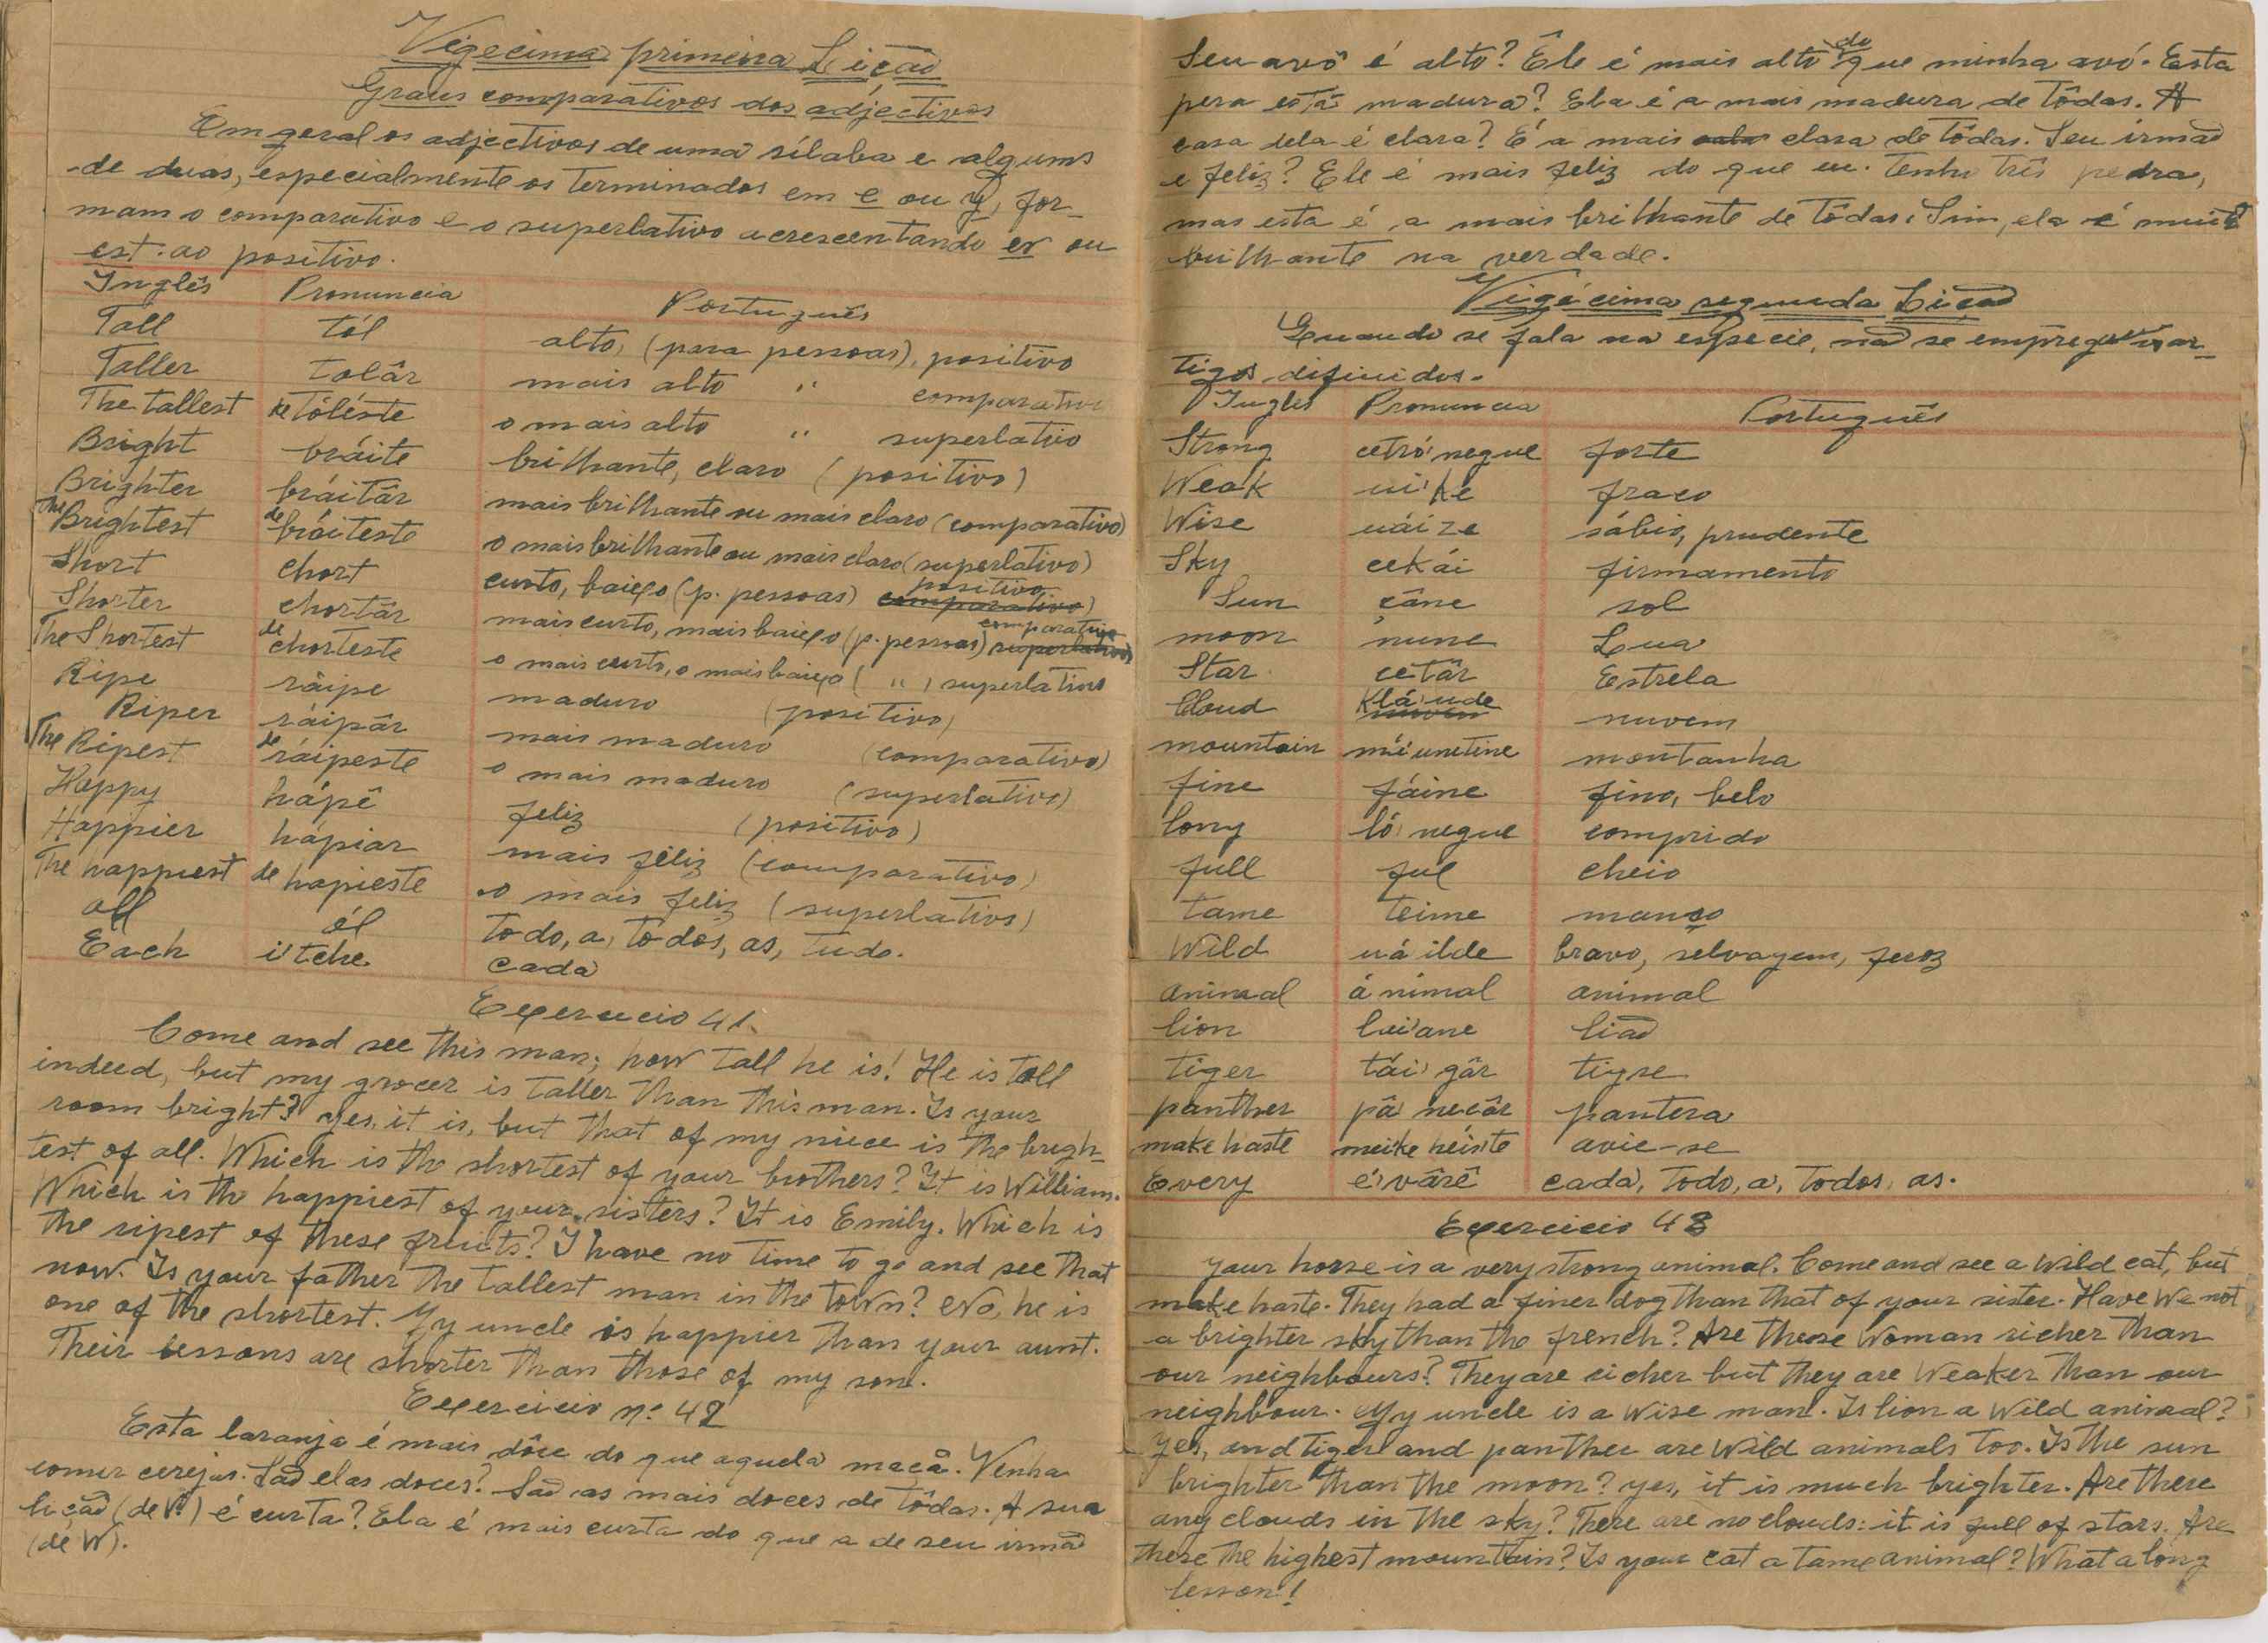 Vigecima primeira Lição
Graus comparativos dos adjectivos
Em geral os adjectivos de uma sílaba e alguns
de duas, especialmente os terminados em e ou y, for-
mam o comparativo e o superlativo acrescentando er ou
est. ao positivo.
Inglês Pronuncia Português
Tall tól alto, (para pessoas), positivo
Taller tolâr mais alto " comparativo
The tallest de tóléste o mais alto " superlativo
Bright bráite brilhante, claro (positivo)
Brighter bráitâr mais brilhante ou mais claro (comparativo)
The Brightest de bráiteste o mais brilhante ou mais claro (superlativo)
Short chort curto, baixo (p. pessoas) comparativo positivo)
Shorter chortâr mais curto, mais baixo (p. pessoas) superlativo comparativo
The Shortest de chorteste o mais curto, o mais baixo ( " ) superlativo
Ripe ráipe maduro (positivo)
Riper ráipâr mais maduro (comparativo)
The Ripest de ráipeste o mais maduro (superlativo)
Happy hápê feliz (positivo)
Happier hápiar mais feliz (comparativo)
The happiest de hapieste o mais feliz (superlativo)
all ól todo, a, todos, as, tudo.
Each i'tche cada
Exercicio 41.
Come and see this man; how tall he is! He is tall
indeed, but my grocer is taller than this man. Is your
room bright? yes, it is, but that of my niece is the brigh-
test of all. Which is the shortest of your brothers? It is William.
Which is the happiest of your sisters? It is Emily. Which is
the ripest of these fruits? I have no time to go and see that
now. Is your father the tallest man in the town? No, he is
one of the shortest. My uncle is happier than your aunt.
Their lessons are shorter than those of my son.
Exercicio nº 42
Esta laranja é mais dôce do que aquela maçã. Venha
comer cerejas. São elas doces? São as mais doces de tôdas. A sua
lição (de V.) é curta? Ela é mais curta do que a de seu irmão
(de W).
Seu avô é alto? Êle é mais alto do que minha avó. Esta
pera está madura? Ela é a mais madura de tôdas. A
casa dela é clara? É a mais clara de tôdas. Seu irmão
e feliz? Ele é mais feliz do que eu. Tenho três pedra,
mas esta é a mais brilhante de tôdas. Sim, ela é muito
brilhante na verdade.
Vigécima segunda Lição
Quando se fala na especie, não se empregam ar-
tigos difinidos.
Inglês Pronuncia Português
Strong cetró'negue forte
Weak ui'ke fraco
Wise uáize sábio, prudente
Sky cekái firmamento
Sun çâne sol
moon nune Lua
Star cetár Estrela
Cloud nuvem kláude nuvem
mountain máunetine montanha
fine fáine fino, belo
long ló'negue comprido
full ful cheio
tame teime manso
Wild uáilde bravo, selvagem, feroz
animal ánimal animal
lion lai'ane lião
tiger tái'gâr tigre
panther pá'necâr pantera
make haste meike héiste avie-se
Every é'vârê cada, todo, a, todos, as.
Exercicio 43
your horse is a very strong animal. Come and see a wild cat, but
make haste. They had a finer dog than that of your sister. Have we not
a brighter sky than the french? Are these woman richer than
our neighbours? They are richer but they are weaker than our
neighbour. My uncle is a wise man. Is lion a wild animal?
yes, and tiger and panther are wild animals too. Is the sun
brighter than the moon? yes, it is much brighter. Are there
any clouds in the sky? There are no clouds: it is full of stars. Are
these the highest mountain? Is your cat a tame animal? What a long
lesson!